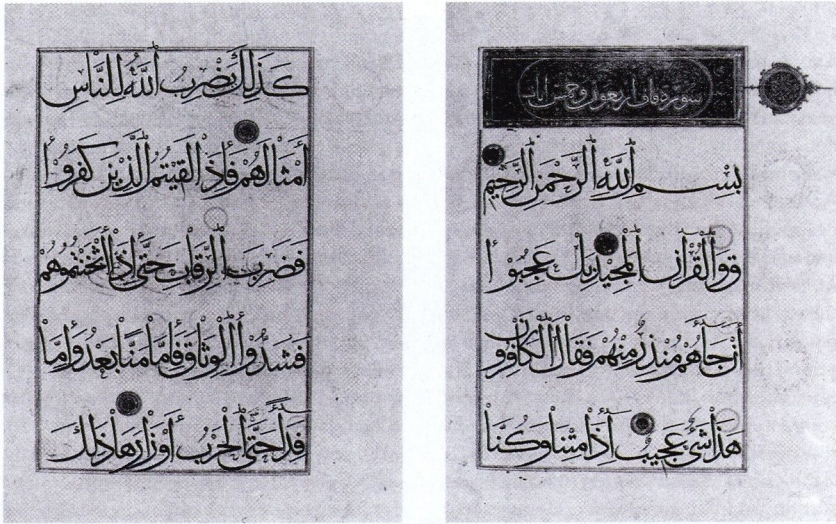 سورة ق اربعون وخمس ايات
بِسْمِ اللَّهِ الرَّحْمَنِ الرَّحِيمِ
ق وَالْقُرْآنِ الْمَجِيدِ بَلْ عَجِبُوا
أَنْ جَاءَهُمْ مُنْذِرٌ مِنْهُمْ فَقَالَ الْكَافِرُونَ
هَذَا شَيْءٌ عَجِيبٌ أَإِذَا مِتْنَا وَكُنَّا
كَذَلِكَ يَضْرِبُ اللَّهُ لِلنَّاسِ
أَمْثَالَهُمْ فَإِذَا لَقِيتُمُ الَّذِينَ كَفَرُوا
فَضَرْبَ الرِّقَابِ حَتَّى إِذَا أَثْخَنْتُمُوهُمْ
فَشُدُّوا الْوَثَاقَ فَإِمَّا مَنًّا بَعْدُ وَإِمَّا
فِدَاءً حَتَّى الْحَرْبُ أَوْزَارَهَا ذَلِكَ